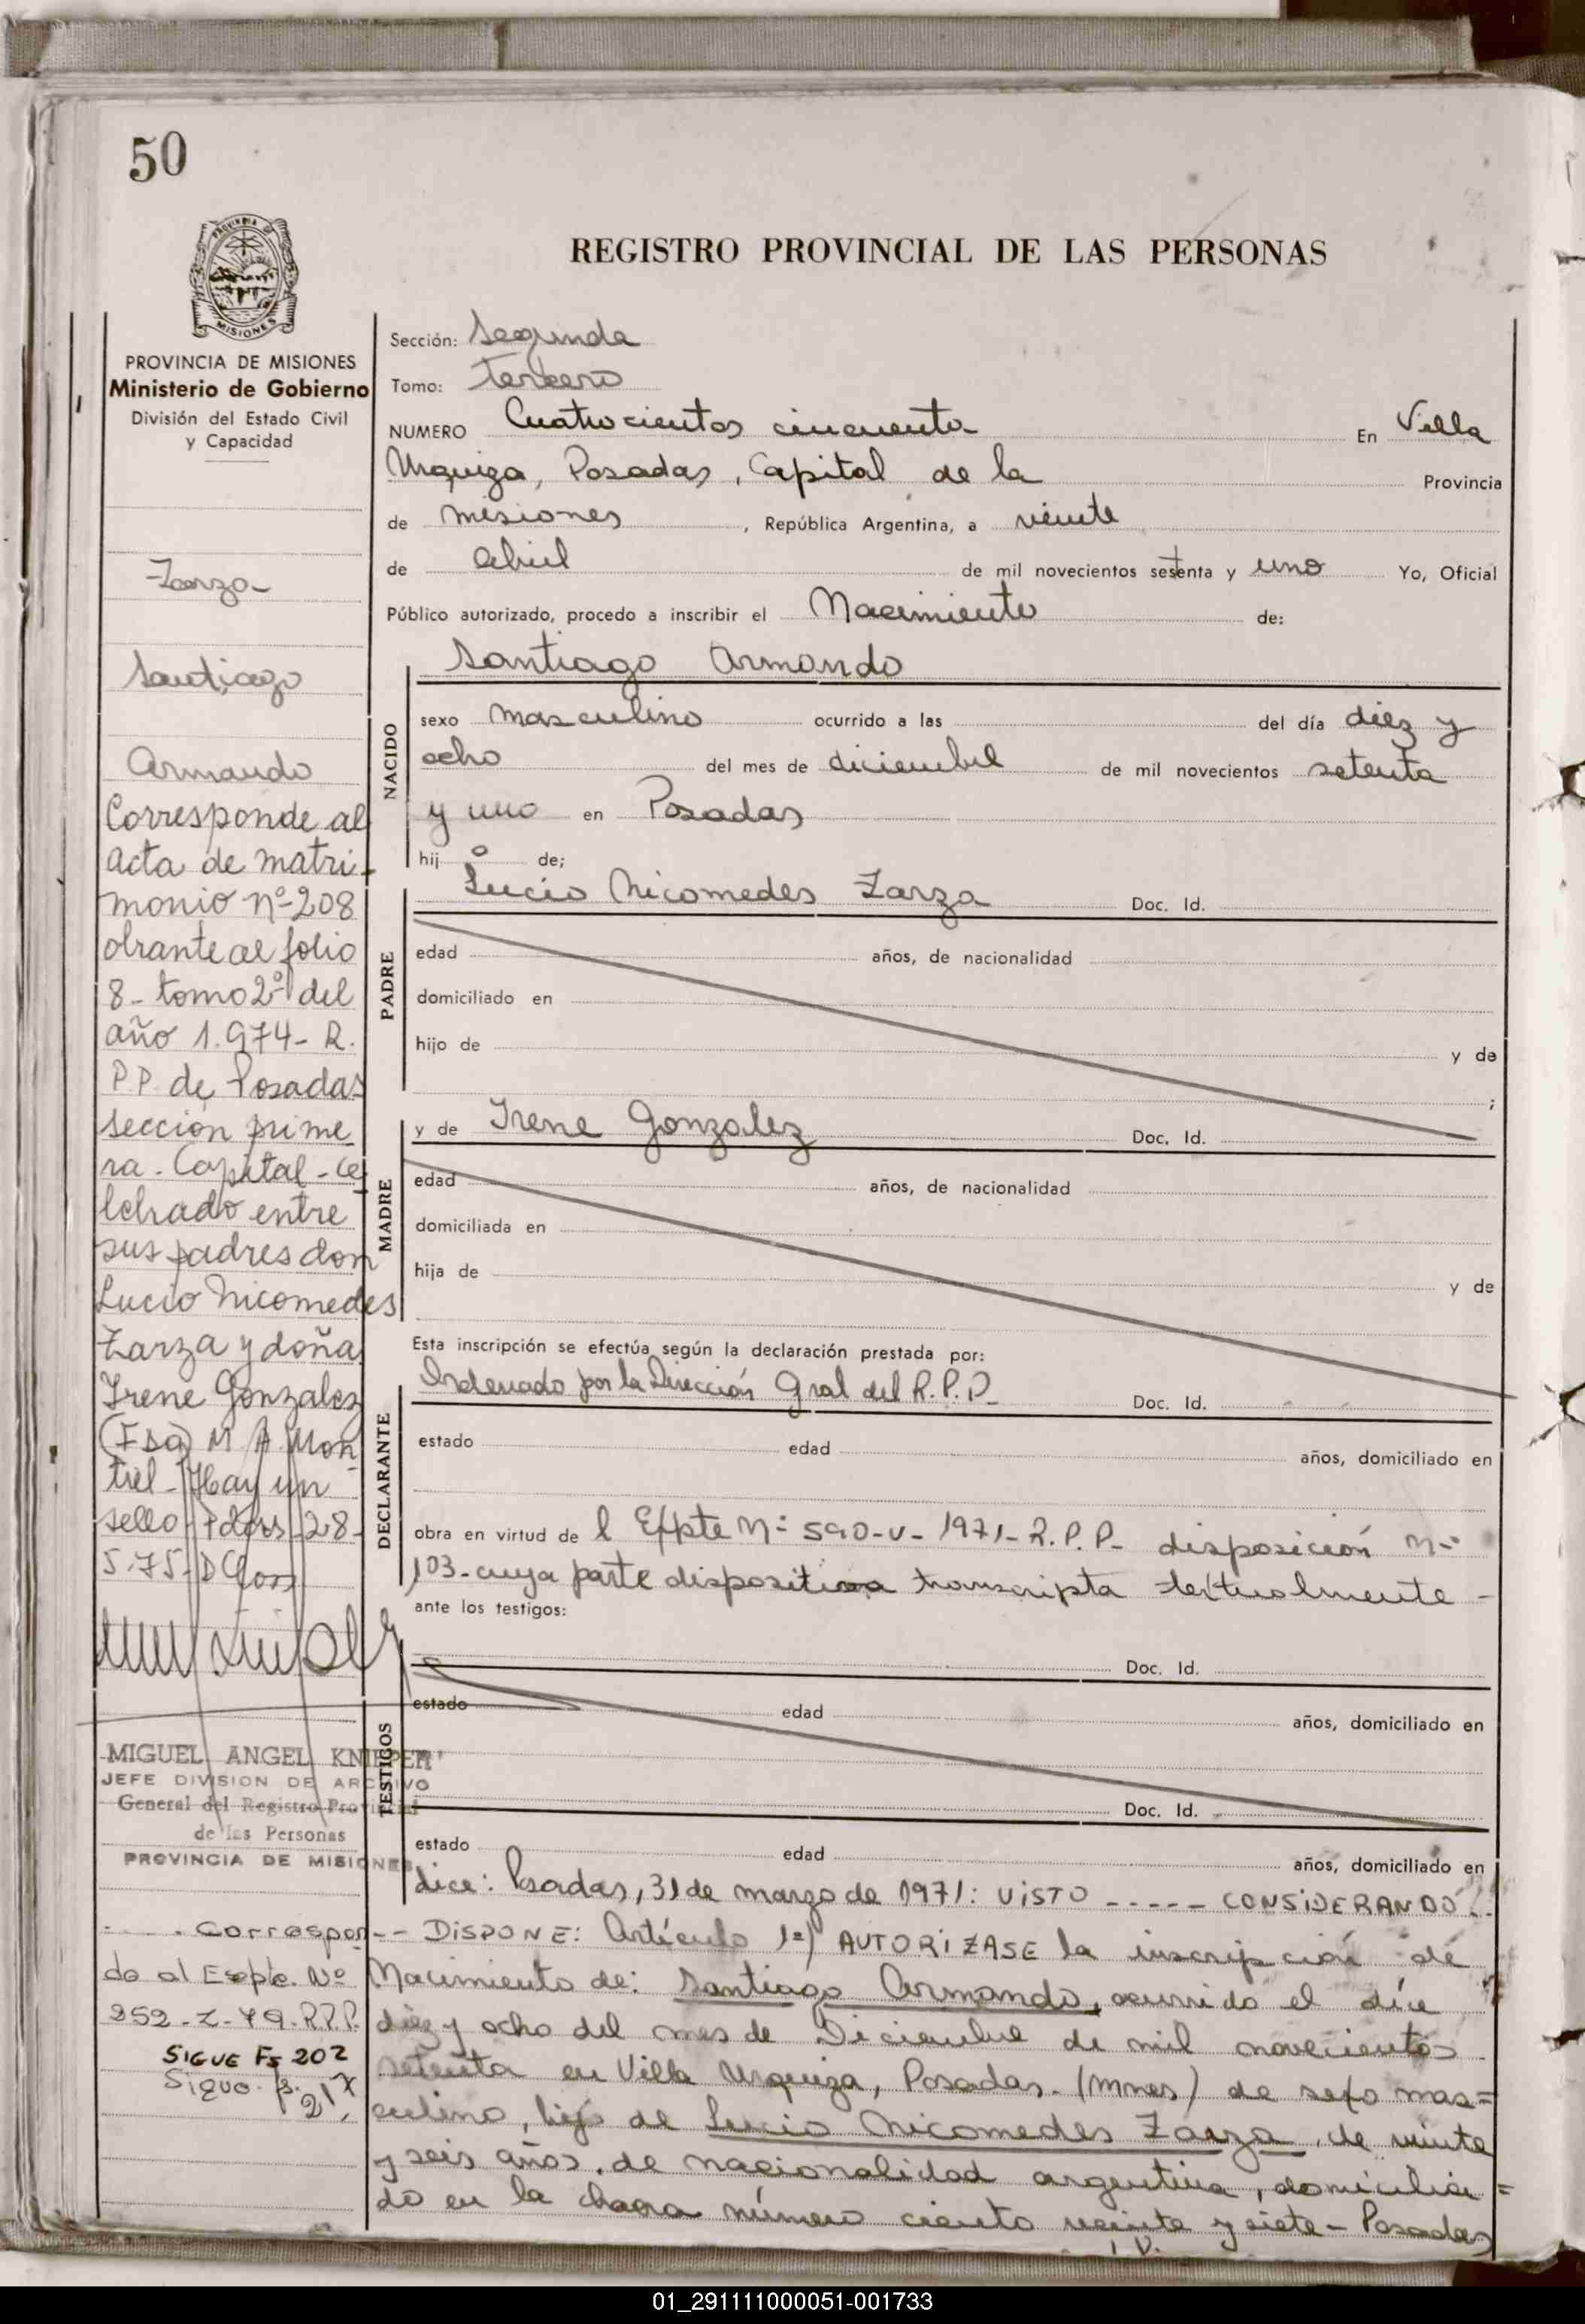 50
PROVINCIA DE MISIONES
Ministerio de Gobierno
División del Estado Civil
y Capacidad
Zarza
Santiago
Armando
Corresponde al
acta de matri-
monio nº 208
obrante al folio
8- tomo 2º del
año 1.974- R.
P.P. de Posadas
sección prime
ra. Capital - ce
lebrado entre
sus padres don
Lucio Nicomedes
Zarza y doña
Irene Gonzalez
(Fdo) M A Mon
tiel - Hay un
sello - Pdas - 28-
5-75-
MIGUEL ANGEL KNIEPER
JEFE DIVISION DE ARCHIVO
General del Registro Provincial
de las Personas
PROVINCIA DE MISIONES
Correspon-
de al Expte. Nº
252-Z-79-R.P.P.
SIGUE Fs 202
Sigue fs. 217
REGISTRO PROVINCIAL DE LAS PERSONAS
Sección: Segunda
Tomo: tercero
NUMERO Cuatrocientos cincuenta En Villa
Urquiza, Posadas, Capital de la Provincia
de misiones, República Argentina, a veinte
de abril de mil novecientos setenta y uno Yo, Oficial
Público autorizado, procedo a inscribir el Nacimiento de:
Santiago Armando
NACIDO
sexo masculino ocurrido a las del día diez y
ocho del mes de diciembre de mil novecientos setenta
y uno en Posadas
hijo de;
Lucio Nicomedes Zarza Doc. Id.
PADRE
edad años, de nacionalidad
domiciliado en
hijo de y de
;
y de Irene Gonzalez Doc. Id.
MADRE
edad años, de nacionalidad
domiciliada en
hija de y de
Esta inscripción se efectúa según la declaración prestada por:
Ordenado por la Dirección Gral del R.P.P- Doc. Id.
DECLARANTE
estado edad años, domiciliado en
obra en virtud de l Expte Nº 590-V-1971-R.P.P- disposición Nº
103-cuya parte dispositiva transcripta textualmente-
ante los testigos:
Doc. Id.
TESTIGOS
estado edad años, domiciliado en
Doc. Id.
estado edad años, domiciliado en
dice: Posadas, 31 de marzo de 1971: VISTO ----- CONSIDERANDO..
-- DISPONE: Artículo 1º) AUTORIZASE la inscripción de
Nacimiento de: Santiago Armando, ocurrido el día
diez y ocho del mes de Diciembre de mil novecientos
setenta en Villa Urquiza, Posadas. (Mnes) de sexo mas=
culino, hijo de Lucio Nicomedes Zarza, de veinte
y seis años, de nacionalidad argentina, domicilia=
do en la chacra número ciento veinte y siete - Posadas
01_291111000051-001733